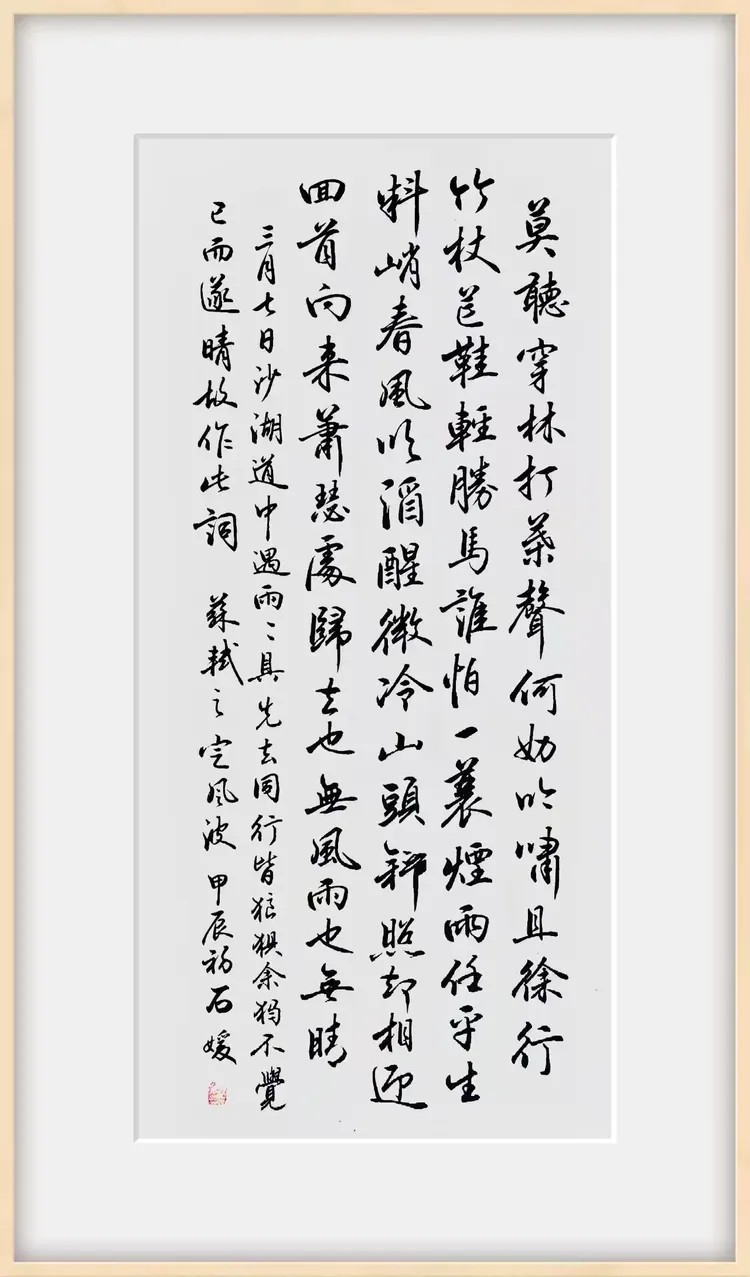 莫聽穿林打葉聲何妨吟嘯且徐行
竹杖芒鞋輕勝馬誰怕一蓑煙雨任平生
料峭春風吹酒醒微冷山頭斜照却相迎
回首向来蕭瑟處歸去也無風雨也無晴
三月七日沙湖道中遇雨〻具先去同行皆狼狽余獨不覺
已而遂晴故作此詞 蘇軾之定風波 甲辰初石媛